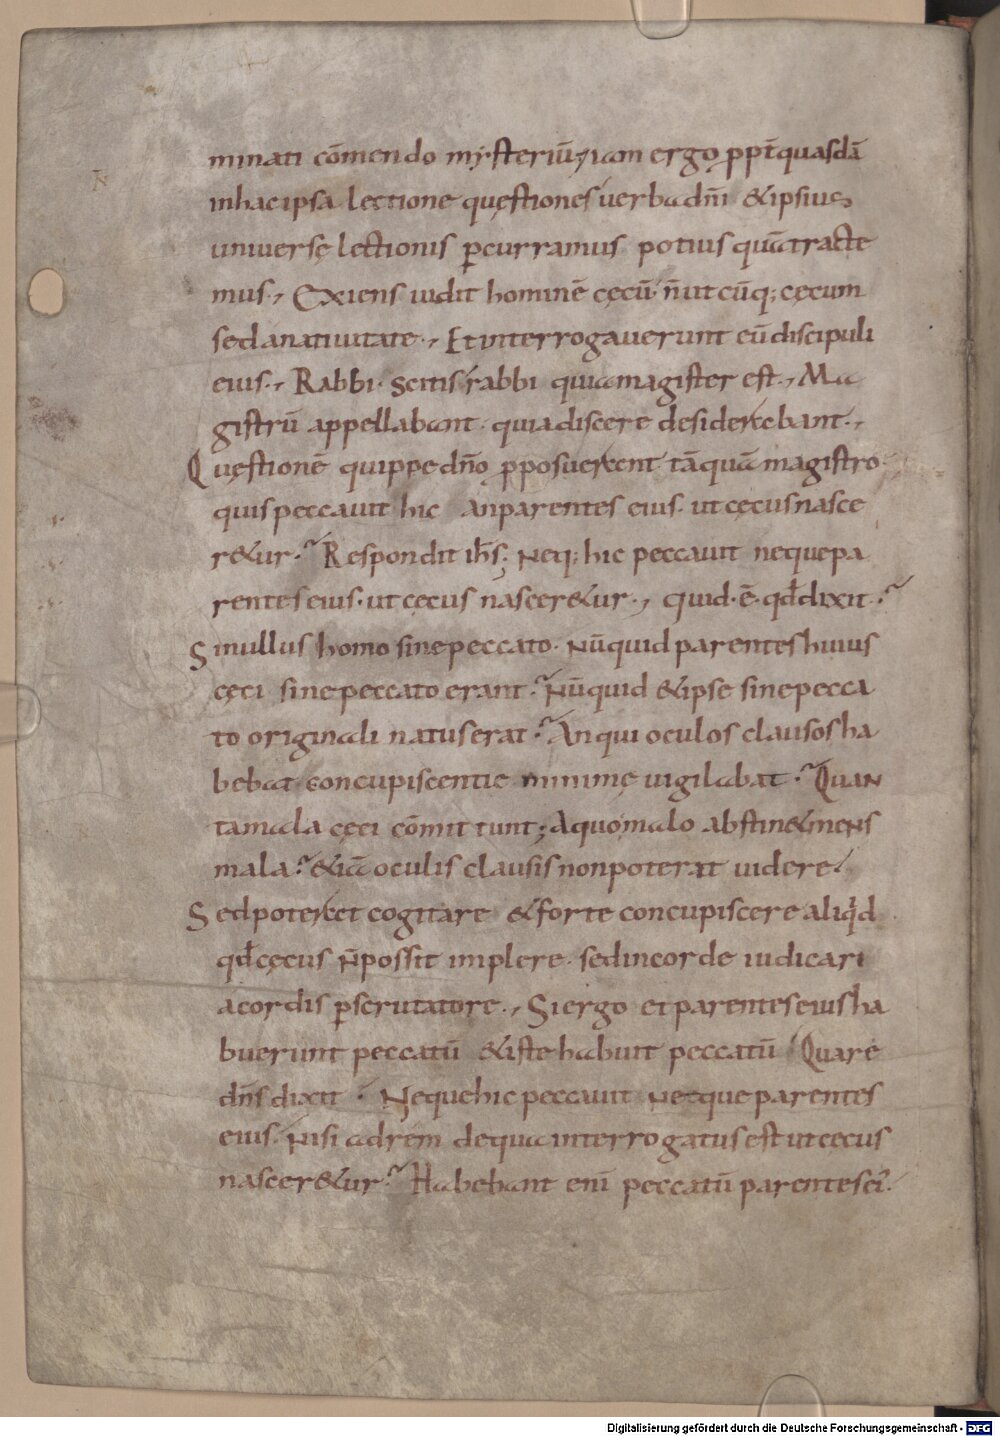 minati cōmendo mysteriū; iam ergo ꝓpt̄ quasdā
inhac ipsa lectione quęstiones uerba dn̄i &ipsius
uniuersę lectionis ꝑcurramus potius quātracte
mus., Exiens uidit hominē cęcū n̄ut cūq; cęcum
sed anatiuitate., Et interrogauerunt eū discipuli
eius., Rabbi. Scitis rabbi quia magister est., Ma
gistrū appellabant. quia discere desiderabant.,
Quęstionē quippe dn̄o ꝓposuerant. tā quā magistro.
quis peccauit hic an parentes eius. ut cęcus nasce
r&ur.? Respondit ih̄s; Neq; hic peccauit neque pa
rentes eius. ut cęcus nascer&ur., quid.ē. qd̄ dixit.?
Si nullus homo sine peccato. Nūquid parentes huius
cęci sine peccato erant.? Nūquid &ipse sine pecca
to originali natus erat.? An qui oculos clausos ha
bebat concupiscentie minime uigilabat.? Quan
ta mala cęci cōmittunt; A quo malo abstin& mens
mala.? &iā oculis clausis non poterat uidere.
Sed poterat cogitare &forte concupiscere aliqd
qd̄ cęcus n̄ possit implere. sed in corde iudicari
a cordis ꝑscrutatore., Si ergo et parentes eius ha
buerunt peccatū &iste habuit peccatū Quare
dn̄s dixit. Neque hic peccauit neque parentes
eius. Nisi ad rem de qua interrogatus est ut cęcus
nascer&ur.? Habebant eni peccatū parentes ei'.
Digitalisierung gefördert durch die Deutsche Forschungsgemeinschaft - DFG